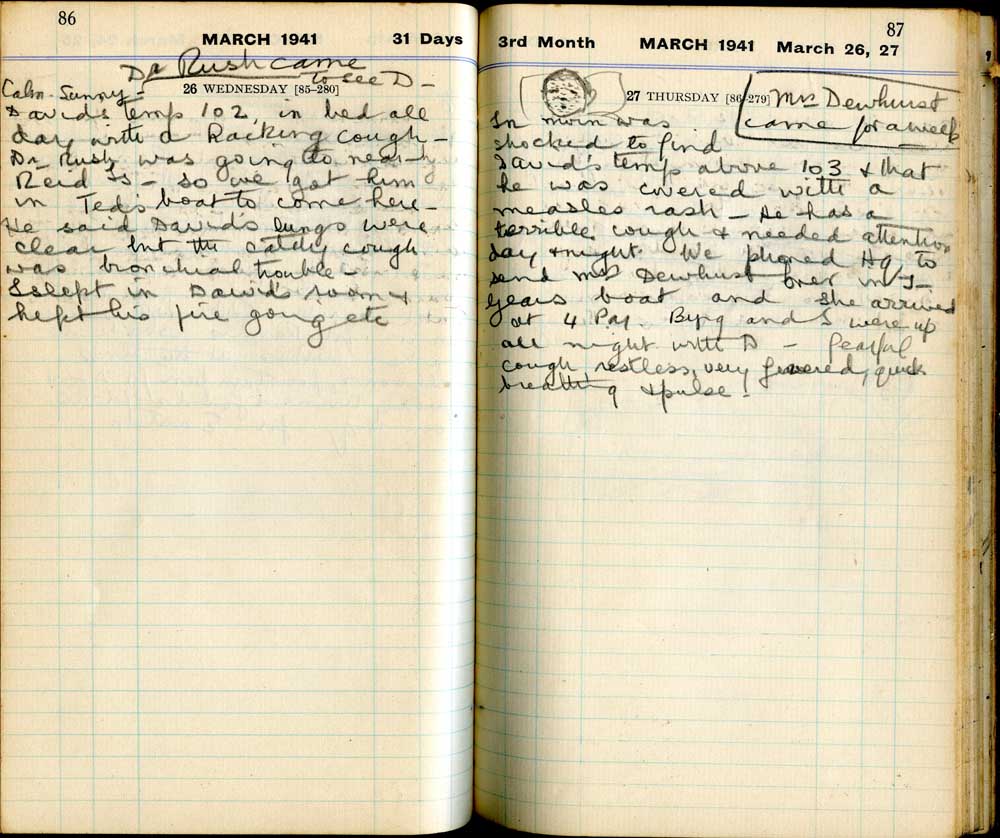 86
MARCH 1941 31 Days
Dr Rush came
to see D -
26 WEDNESDAY [85-280]
Calm. Sunny -
David's temp 102, in bed all
day with a Racking cough -
Dr Rush was going to near-by
Reid Is - so we got him
in Teds boat to come here -
He said David's lungs were
clear but the catchy cough
was bronchial trouble -
I slept in David's room &
kept his fire going etc
87
3rd Month MARCH 1941 March 26, 27
27 THURSDAY [86-279]
Mrs Dewhurst
came for a week
In morn was
shocked to find
David's temp above 103 & that
he was covered with a
measles rash - He has a
terrible cough & needed attention
day & night. We phoned Hq to
send Mrs Dewhurst over in J-
years boat and she arrived
at 4 P.M. Byng and I were up
all night with D - fearful
cough restless, very fevered, quick
breathing & pulse -